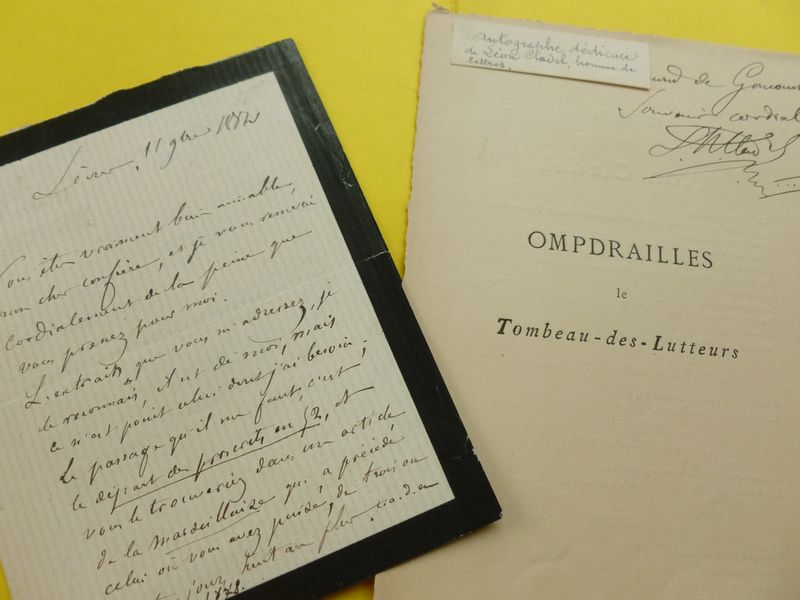 Sèvres, 11 9bre 1882
Vous êtes vraiment bien aimable,
mon cher confrère, et je vous remercie
cordialement de la peine que
vous prenez pour moi.
L'extrait que vous m'adressez, je
le reconnais, il est de moi, mais
ce n'est point celui dont j'ai besoin;
Le passage qu'il me faut, c'est,
le départ des proscrits en 52, et
vous le trouverez dans un article
de la Marseillaise qui a précédé
celui où vous avez puisé, de trois ou
jours, huit au plus
1878.
autographe, dédicace
de Léon Cladel, homme de
lettres.
de Goncourt
Souvenir cordial
OMPDRAILLES
le
Tombeau-des-Lutteurs